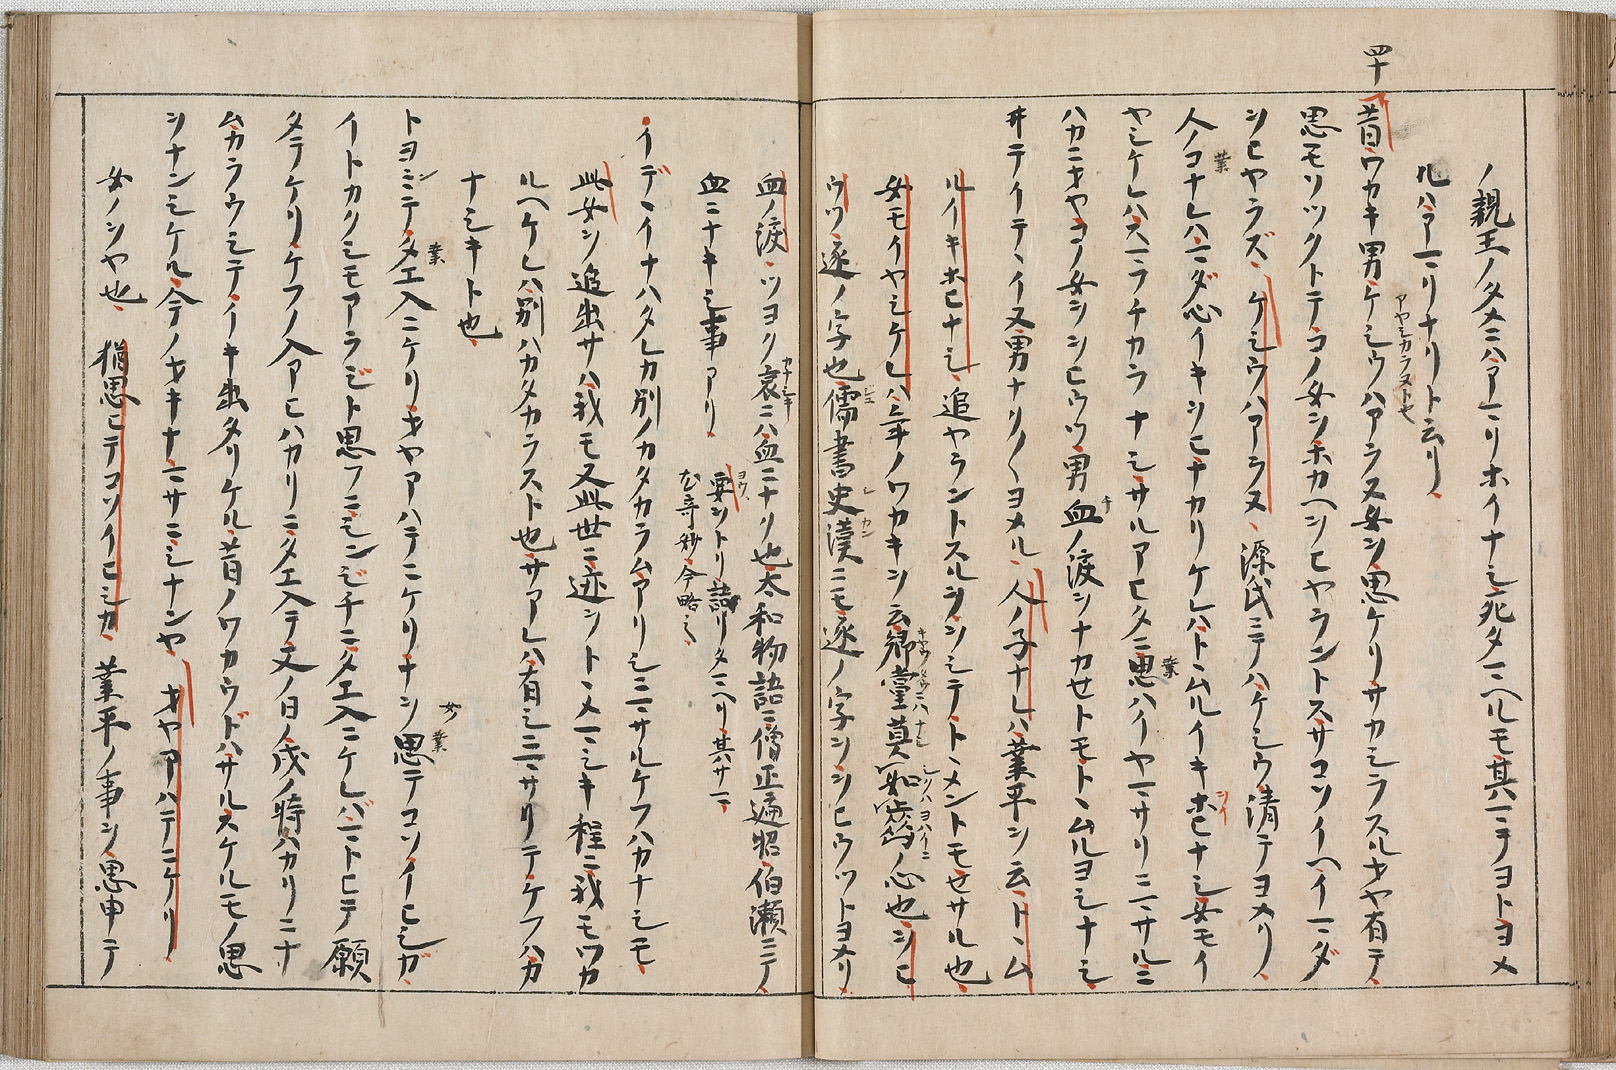 ノ親王ノタメニハアマリホイナシ死タマヘルモ其ハマヲヨトヨメ
ルハアマリナリト云リ
四十
昔ワカキ男ケシウハアラヌ女ヲ思ケリサカシラスルオヤ有テ
アヤシカラヌトセ
思モソツクトテコノ女ヲホカヘヲヒヤラントスサコソイヘイマダ
ヲヒヤラズケシウハアラヌ源氏ニテハケシウ清テヨメリ
人ノコナレハマダ心イキヲヒナカリケレハトヽムルイキホヒナシ女モイ
業
ヤシケレハスマフチカラナシサルアヒタニ思ハイヤマサリニマサルニ
業
ハカニオヤコノ女ヲヲヒウツ男血ノ涙ヲナカセトモトヽムルヨシナシ
チ
井テイテイヌ男ナク〱ヨメル人ノ子ナレハ業平ヲ云トヽム
ルイキホヒナシ追ヤラントスルヲヲシテトヽメントモセサル也
女モイヤシケレハ年ノワカキヲ云郷黨莫如歯ノ心也ヲヒ
ウツ逐ノ字也儒書史漢ニモ逐ノ字ヲヲヒウツトヨメリ
血ノ涙ツヨク哀ニハ血ニナク也太和物語ニ僧正遍昭伯瀬ニテ
カナシキ
血ニナキシ事アリ
要ヲトリ語リタマヘリ其サマ
ヨウ
哥抄今略之
イデヽイナハタレカ別ノカタカラムアリシニマサルケフハカナシモ
此女ヲ追出サハ我モ又此世ニ迹ヲトヽメマシキ程ニ我モワカ
ルヘケレハ別ハカタカラスト也サアレハ有シニマサリテケフハカ
ナシキト也
トヨミテタエ入ニケリオヤアハテニケリナヲ思テコソイヒシガ
業
女
業
イトカクシモアラジト思フニシンジチニタエ入ニケレバマトヒテ願
タテケリケフノ入アヒハカリニタエ入テ又ノ日ノ戌ノ時ハカリニナ
ムカラウシテイキ出タリケル昔ノワカウドハサルスケルモノ思
ヲナンシケル今ノオキナマサニシナンヤオヤアハテニケリ
女ノヲヤ也猶思ヒテコソイヒシカ業平ノ事ヲ思申テ